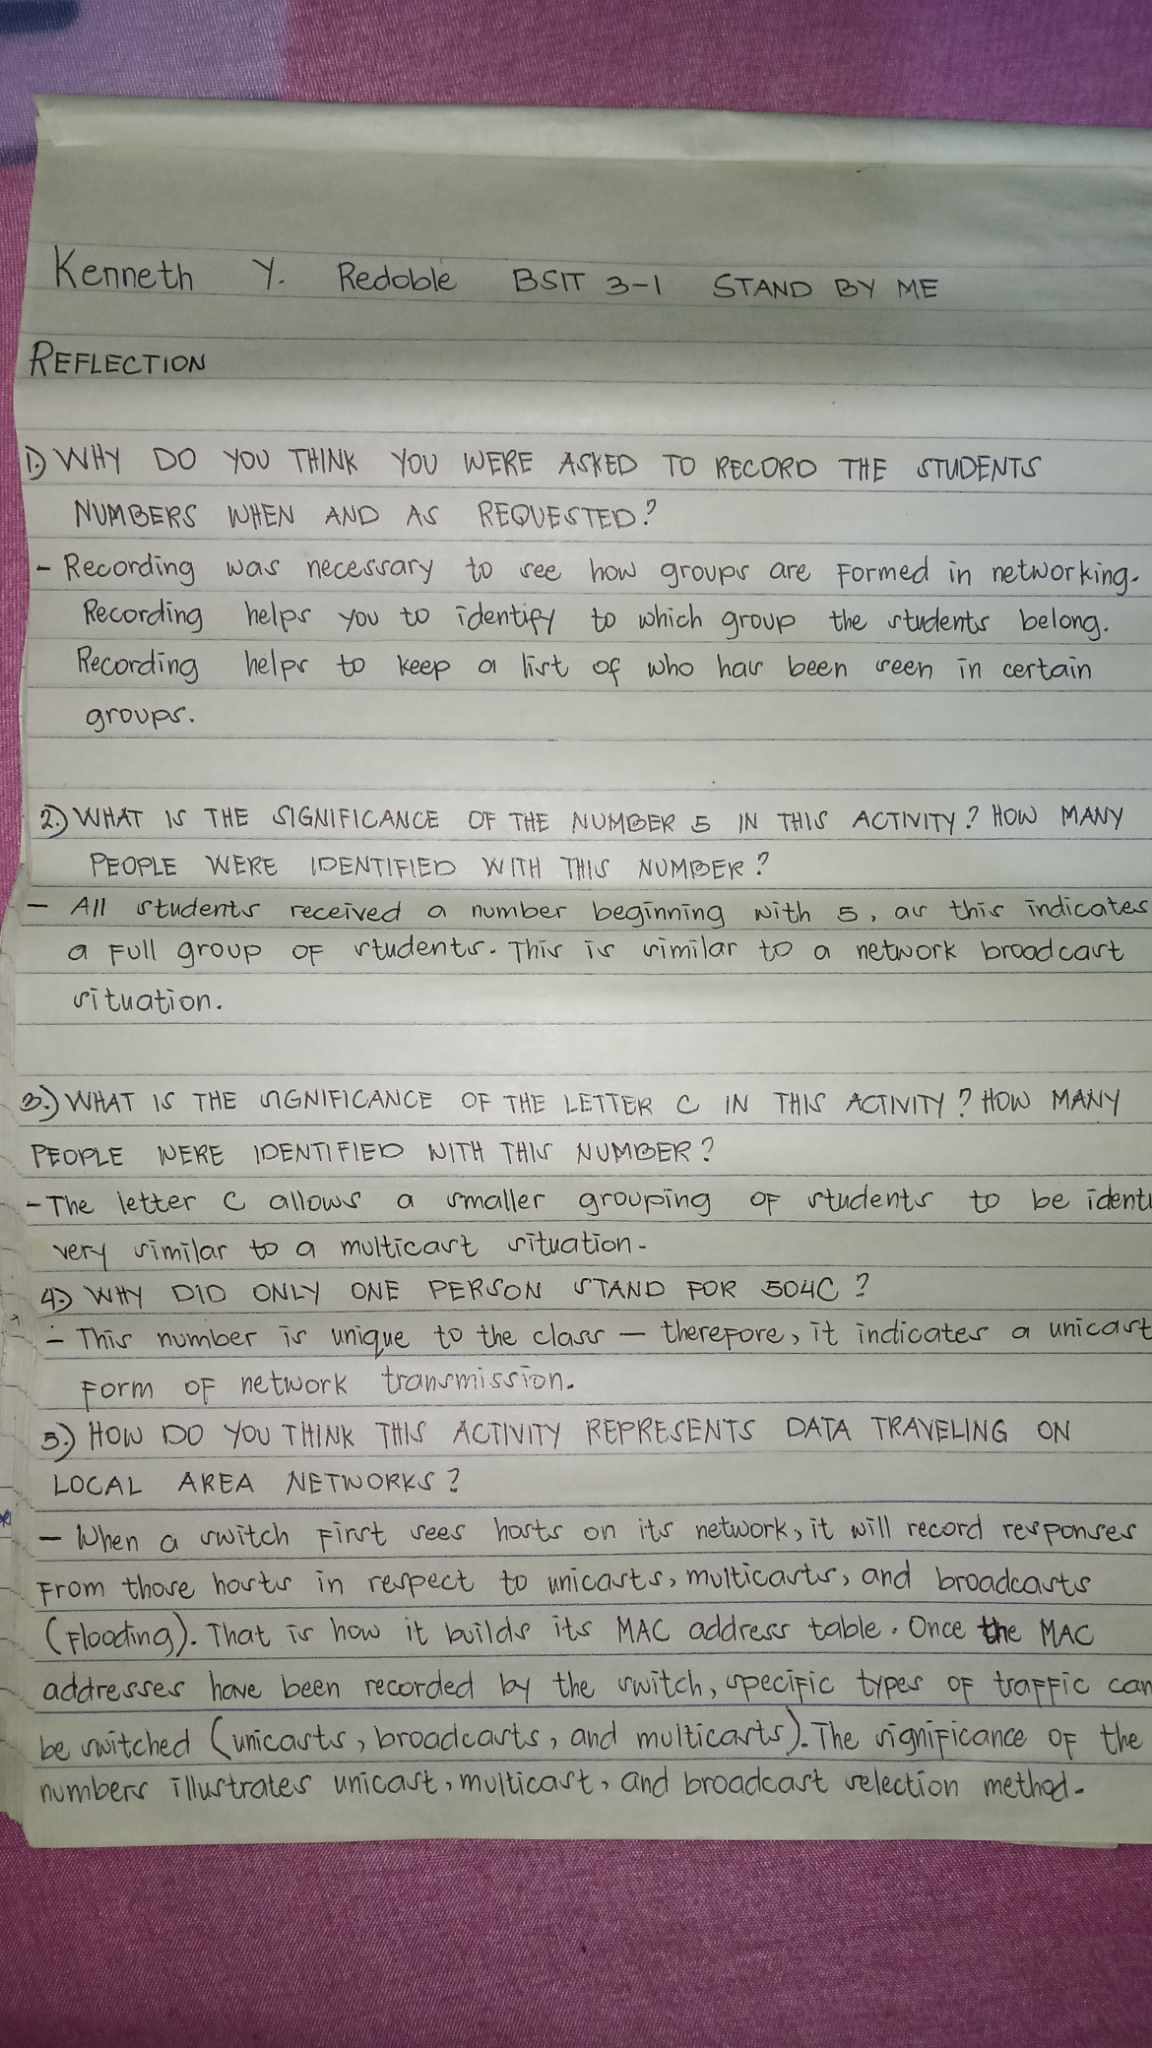 Kenneth Y. Redoble BSIT 3-1 STAND BY ME
REFLECTION
1.) WHY DO YOU THINK YOU WERE ASKED TO RECORD THE STUDENTS
NUMBERS WHEN AND AS REQUESTED?
- Recording was necessary to see how groups are formed in networking.
Recording helps you to identify to which group the students belong.
Recording helps to keep a list of who has been seen in certain
groups.
2.) WHAT IS THE SIGNIFICANCE OF THE NUMBER 5 IN THIS ACTIVITY? HOW MANY
PEOPLE WERE IDENTIFIED WITH THIS NUMBER?
- All students received a number beginning with 5, as this indicates
a full group of students. This is similar to a network broadcast
situation.
3.) WHAT IS THE SIGNIFICANCE OF THE LETTER C IN THIS ACTIVITY? HOW MANY
PEOPLE WERE IDENTIFIED WITH THIS NUMBER?
- The letter C allows a smaller grouping of students to be identi
very similar to a multicast situation.
4.) WHY DID ONLY ONE PERSON STAND FOR 504C?
- This number is unique to the class - therefore, it indicates a unicast
form of network transmission.
5.) HOW DO YOU THINK THIS ACTIVITY REPRESENTS DATA TRAVELING ON
LOCAL AREA NETWORKS?
- When a switch first sees hosts on its network, it will record responses
from those hosts in respect to unicasts, multicasts, and broadcasts
(flooding). That is how it builds its MAC address table. Once the MAC
addresses have been recorded by the switch, specific types of traffic can
be switched (unicasts, broadcasts, and multicasts). The significance of the
numbers illustrates unicast, multicast, and broadcast selection method.